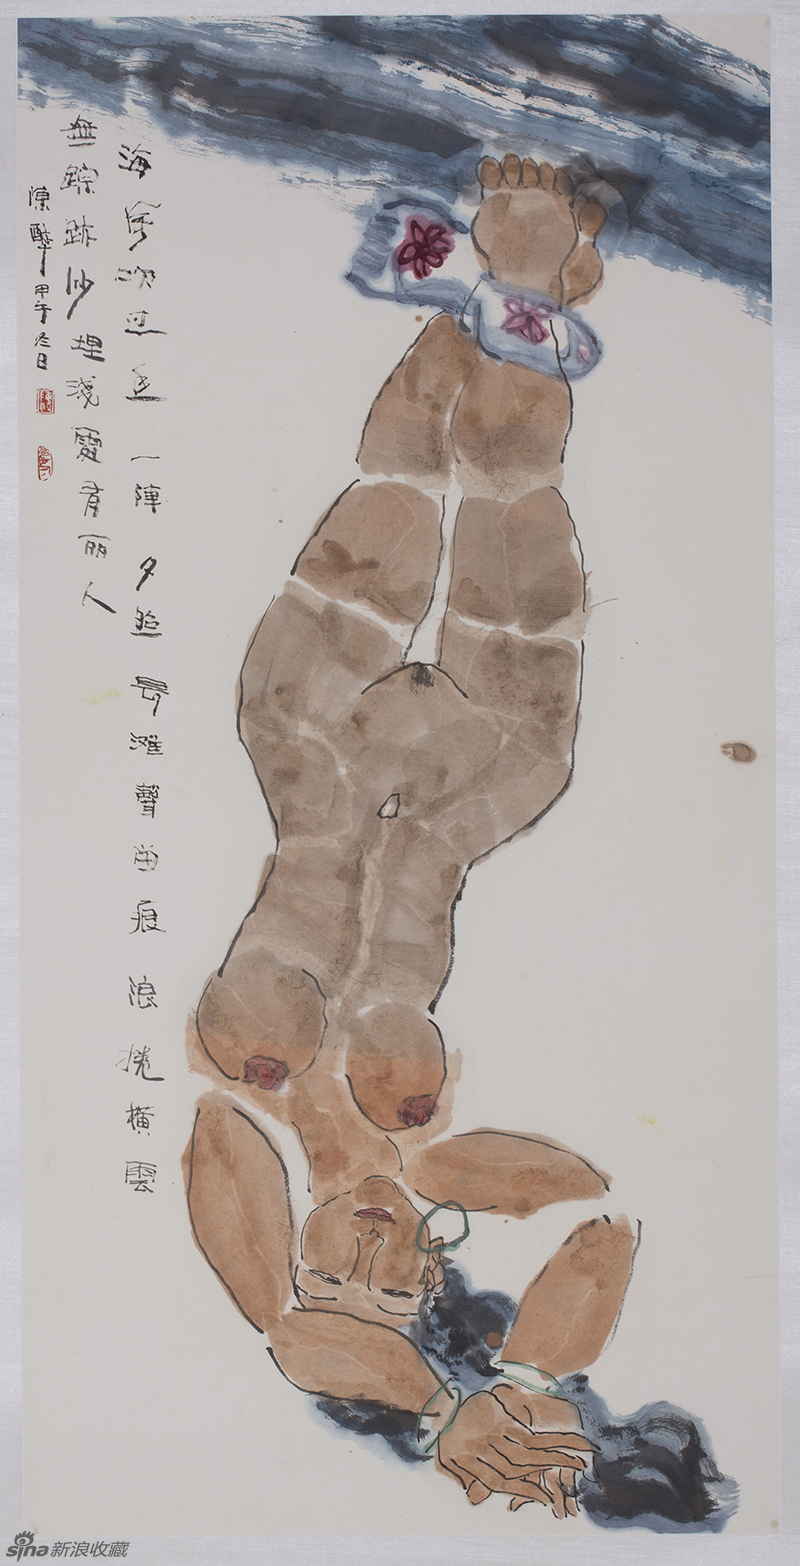 海風吹过一陣夕照長滩聲留痕浪捲橫雲
無踪跡沙埋淺處有丽人
陳醉甲午冬日
sina新浪收藏